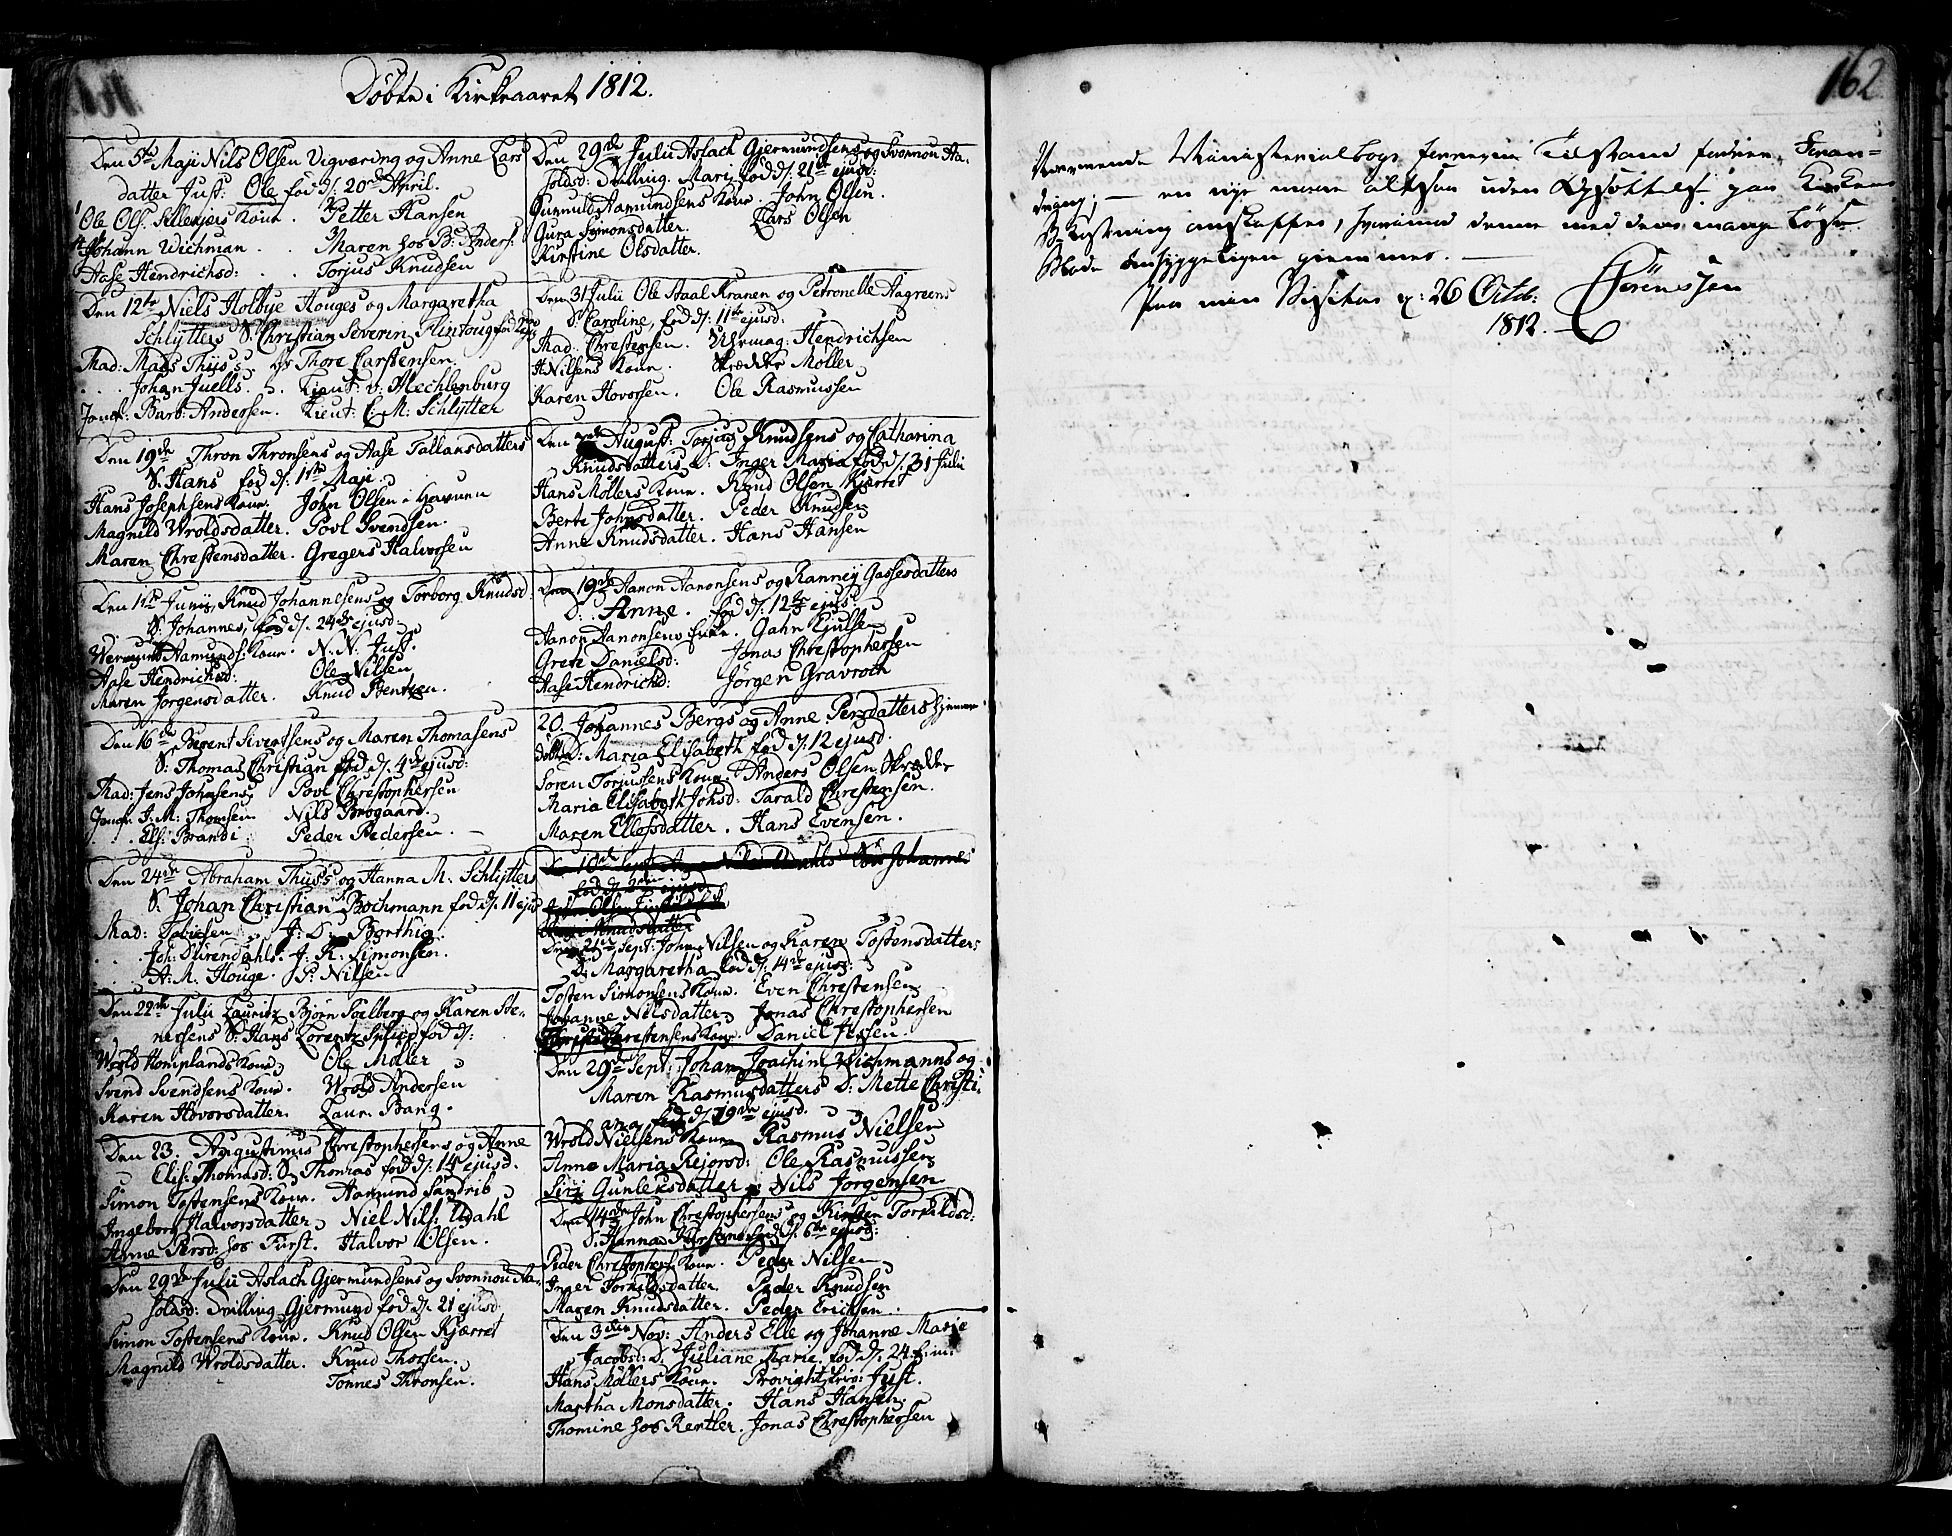 Døbte i Kirkeaaret 1812.
Den 5te Maji Nils Olsen Vigværing og Anne Lars
datter Just: Ole fød d: 20de April.
Ole Ols: Sellejers Kone. Petter Hansen
Johann Wichman. Maren hos B: Anders:
Aase Hendrichsd: . . Torjus Knudsen
Den 12te Niels Holbye Houges og Margaretha
Schlytters S: Christian Severin fød
Mad: Mads Thiis's. Hr Thore Carstensen
. . Johan Juells. Lieut: v: Mechlenburg
Jomf: Barb: Andersen. Lieut: C: M: Schlytter
Den 19de Thron Thronsens og Aase Tallansdatters
S: Hans fød d: 1ste Maji.
Hans Josephsens Kone. John Olsen i
Magnild Wroldsdatter. Povl Svendsen.
Maren Chrestensdatter. Gregers Halvorsen
Den Junij, Knud Johannesens og Torborg Knudsd:
S: Johannes, fød d: 24de ejusd
Aamunds: Kone. N: N: Just.
Aase Hendrichsd: Ole Nilsen
Maren Jørgensdatter. Knud Bentsen.
Den 16de Berent Sivertsens og Maren Thomasens
S: Thomas Christian fød d: 4de ejusd:
Mad: Jens Johnsens, Povl Christophersen
Jomfr: J: M: Thomsen Nils Brogaard.
. . . Els: Brandi: Peder Pedersen. —
Den 24de Abraham Thiis's og Hanna M: Schlytters
S: Johan Christian Bochmann fød d: 11 ejusd
Mad: Tobiesen J: D: Barthig.
. . Joh: Dürendahls. J: K: Simonsen.
. . A: M: Houge. S: Nilsen
Den 22de Julii Lauritz Bjørn Toelberg og Karen Ste-
nersens S: Hans Lorentz fød d:
Wrold Homplands Kone, Ole Møller
Svend Svendsens Kone. Wrold Andersen
Karen Hovorsdatter. Laur: Bang.
Den 23. Augustinus Christophersens og Anne
Elis: Thomasd: S: Thomas fød d: 14 ejusd.
Simon Tostensens Kone. Aamund Sandvib
Ingeborg Halvorsdatter, Niel Nils: Udahl
Anne Persd: hos Fürst. Halvor Olsen.
Den 29de Julii Aslach Gjermundsens og Svonnou Aa-
solsd: Drilling Gjermund fød d: 21 ejusd.
Simon Tostensens Kone. Knud Olsen Kjærret
Magnild Wroldsdatter. Knud Thorsen.
Tønnes Thronsen.
Den 29de Julii Aslach Gjermundsens og Svonnou Aa-
solsd: Drilling Mari fød d: 21de ejusd:
Gunnuld Aamundsens Kone. John Olsen.
Gura Symonsdatter. Lars Olsen
Kirstine Olsdatter.
Den 31 Julii Ole Staal Kranen og Petronelle Aagreens
D: Caroline, fød d: 11te ejusd.
Mad. Christensen. Uhrmag: Hendrichsen
H: Nilsens Kone. Skrædder Møller
Karen Hovorsen. Ole Rasmussen
Den August: Torjus Knudsens og Catharina
Knudsdatters D: Inger Maria fød d: 31 Julii
Hans Møllers Kone. Knud Olsen Kjærret
Berte Johnsdatter. Peder Knudsen
Anne Knudsdatter. Hans Hansen
Den 19de Aanon Aanonsens og Ranneij Gassesdatters
D: Anne. fød d: 12te ejusd
Aanon Aanonsens Enke. Gahn Kjulsen
Grete Danielsd: Jonas Christophersen
Aase Hendrichd: Jørgen Gravroch
20. Johannes Bergs og Anne Persdatters hjemme-
døbte D: Maria Elisabeth fød d: 12 ejusd.
Søren Torjussens Kone. Anders Olsen Skrædder
Maria Elisabeth Johsd: Tarald Christensen.
Maren Ellefsdatter. Hans Evensen.
Johannes
Den 21de Sept: John Nilsen og Karen Tostensdatters
D: Margaretha fød d: 14de ejusd:
Tosten Simonsens Kone. Even Christensen
Johanne Nilsdatter, Jonas Christophersen
Christensens Kone. Daniel
Den 29de Sept: Johan Joachim Wichmanns og
Maren Rasmusdatters D: Mette Christi-
ana fød d: 19de ejusd.
Wrold Nielsens Kone Rasmus Nielsen
Anne Maria Rejorsd: Ole Rasmussen
Siri Gunleksdatter. Nils Jørgensen
Den 14de John Christophersens og Kirsten Torkildsd:
D: Hanna fød d: 6te ejusd:
Peder Christophers: Kone. Peder Nilsen
Inger Torkildsdatter Peder Knudsen
Maren Knudsdatter. Peder Ericksen.
Den 3die Nov: Anders Elle og Johanne Marie
Jacobsd: D: Juliane Marie. fød d: 24.
Hans Møllers Kone. Just.
Martha Monsdatter. Hans Hansen.
Thomine hos Rentler. Jonas Christophersen
162
Nærværende Ministerialbogs Tilstand fordrer, Foran-
dring; — en nye maae altsaa uden Opsættelse paa Kirkens
B:kostning anskaffes, hvorimod denne med dens mange løse
Blade omhyggeligen giemmes. —
Paa min Visitas d: 26 Octob:
1812. — Sørenssen